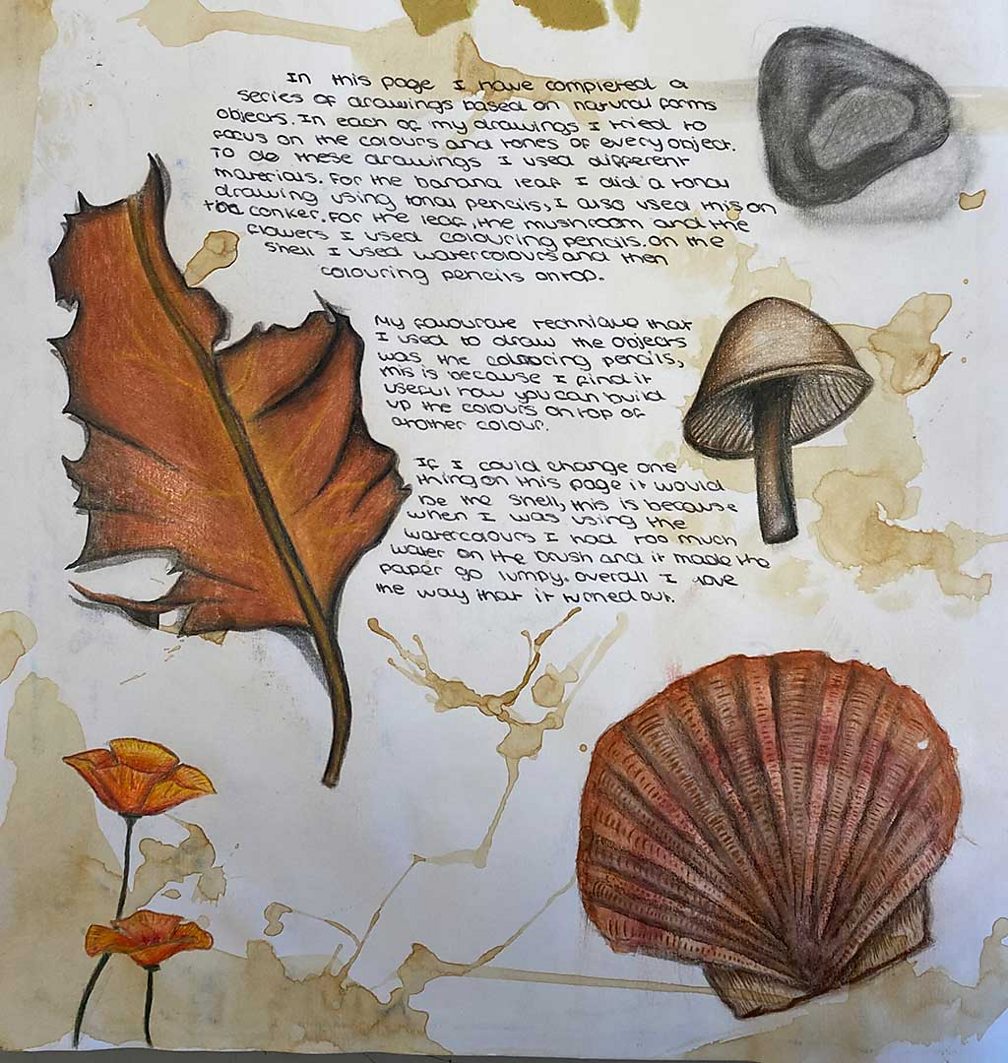 In this page I have completed a
series of drawings based on natural forms
objects. In each of my drawings I tried to
focus on the colours and tones of every object.
To do these drawings I used different
materials. For the banana leaf I did a tonal
drawing using tonal pencils, I also used this on
the conker. For the leaf, the mushroom and the
flowers I used colouring pencils. On the
shell I used watercolours and then
colouring pencils on top.
My favourate technique that
I used to draw the objects
was the colouring pencils,
this is because I find it
useful how you can build
up the colours on top of
another colour.
If I could change one
thing on this page it would
be the shell, this is because
when I was using the
watercolours I had too much
water on the brush and it made the
paper go lumpy. Overall I love
the way that it turned out.